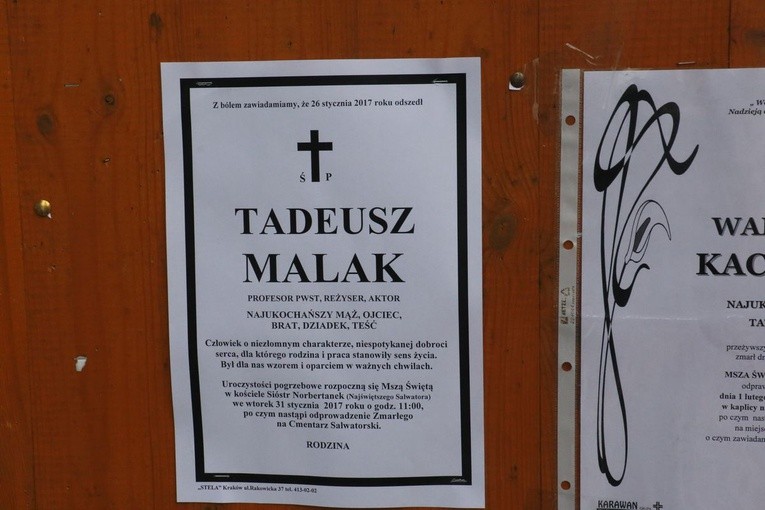 Z bólem zawiadamiamy, że 26 stycznia 2017 roku odszedł
Ś P
TADEUSZ
MALAK
PROFESOR PWST, REŻYSER, AKTOR
NAJUKOCHAŃSZY MĄŻ, OJCIEC,
BRAT, DZIADEK, TEŚĆ
Człowiek o niezłomnym charakterze, niespotykanej dobroci
serca, dla którego rodzina i praca stanowiły sens życia.
Był dla nas wzorem i oparciem w ważnych chwilach.
Uroczystości pogrzebowe rozpoczną się Mszą Świętą
w kościele Sióstr Norbertanek (Najświętszego Salwatora)
we wtorek 31 stycznia 2017 roku o godz. 11:00,
po czym nastąpi odprowadzenie Zmarłego
na Cmentarz Salwatorski.
RODZINA
„STELA” Kraków ul.Rakowicka 37 tel. 413-02-02
Nadzieją
WAL
KAC
NAJUK
TA
przeżywszy
zmarł d
MSZA ŚW
odpraw
dnia 1 lutego
w kaplicy n
po czym nas
na miejs
o czym zawiadam
KARAWAN